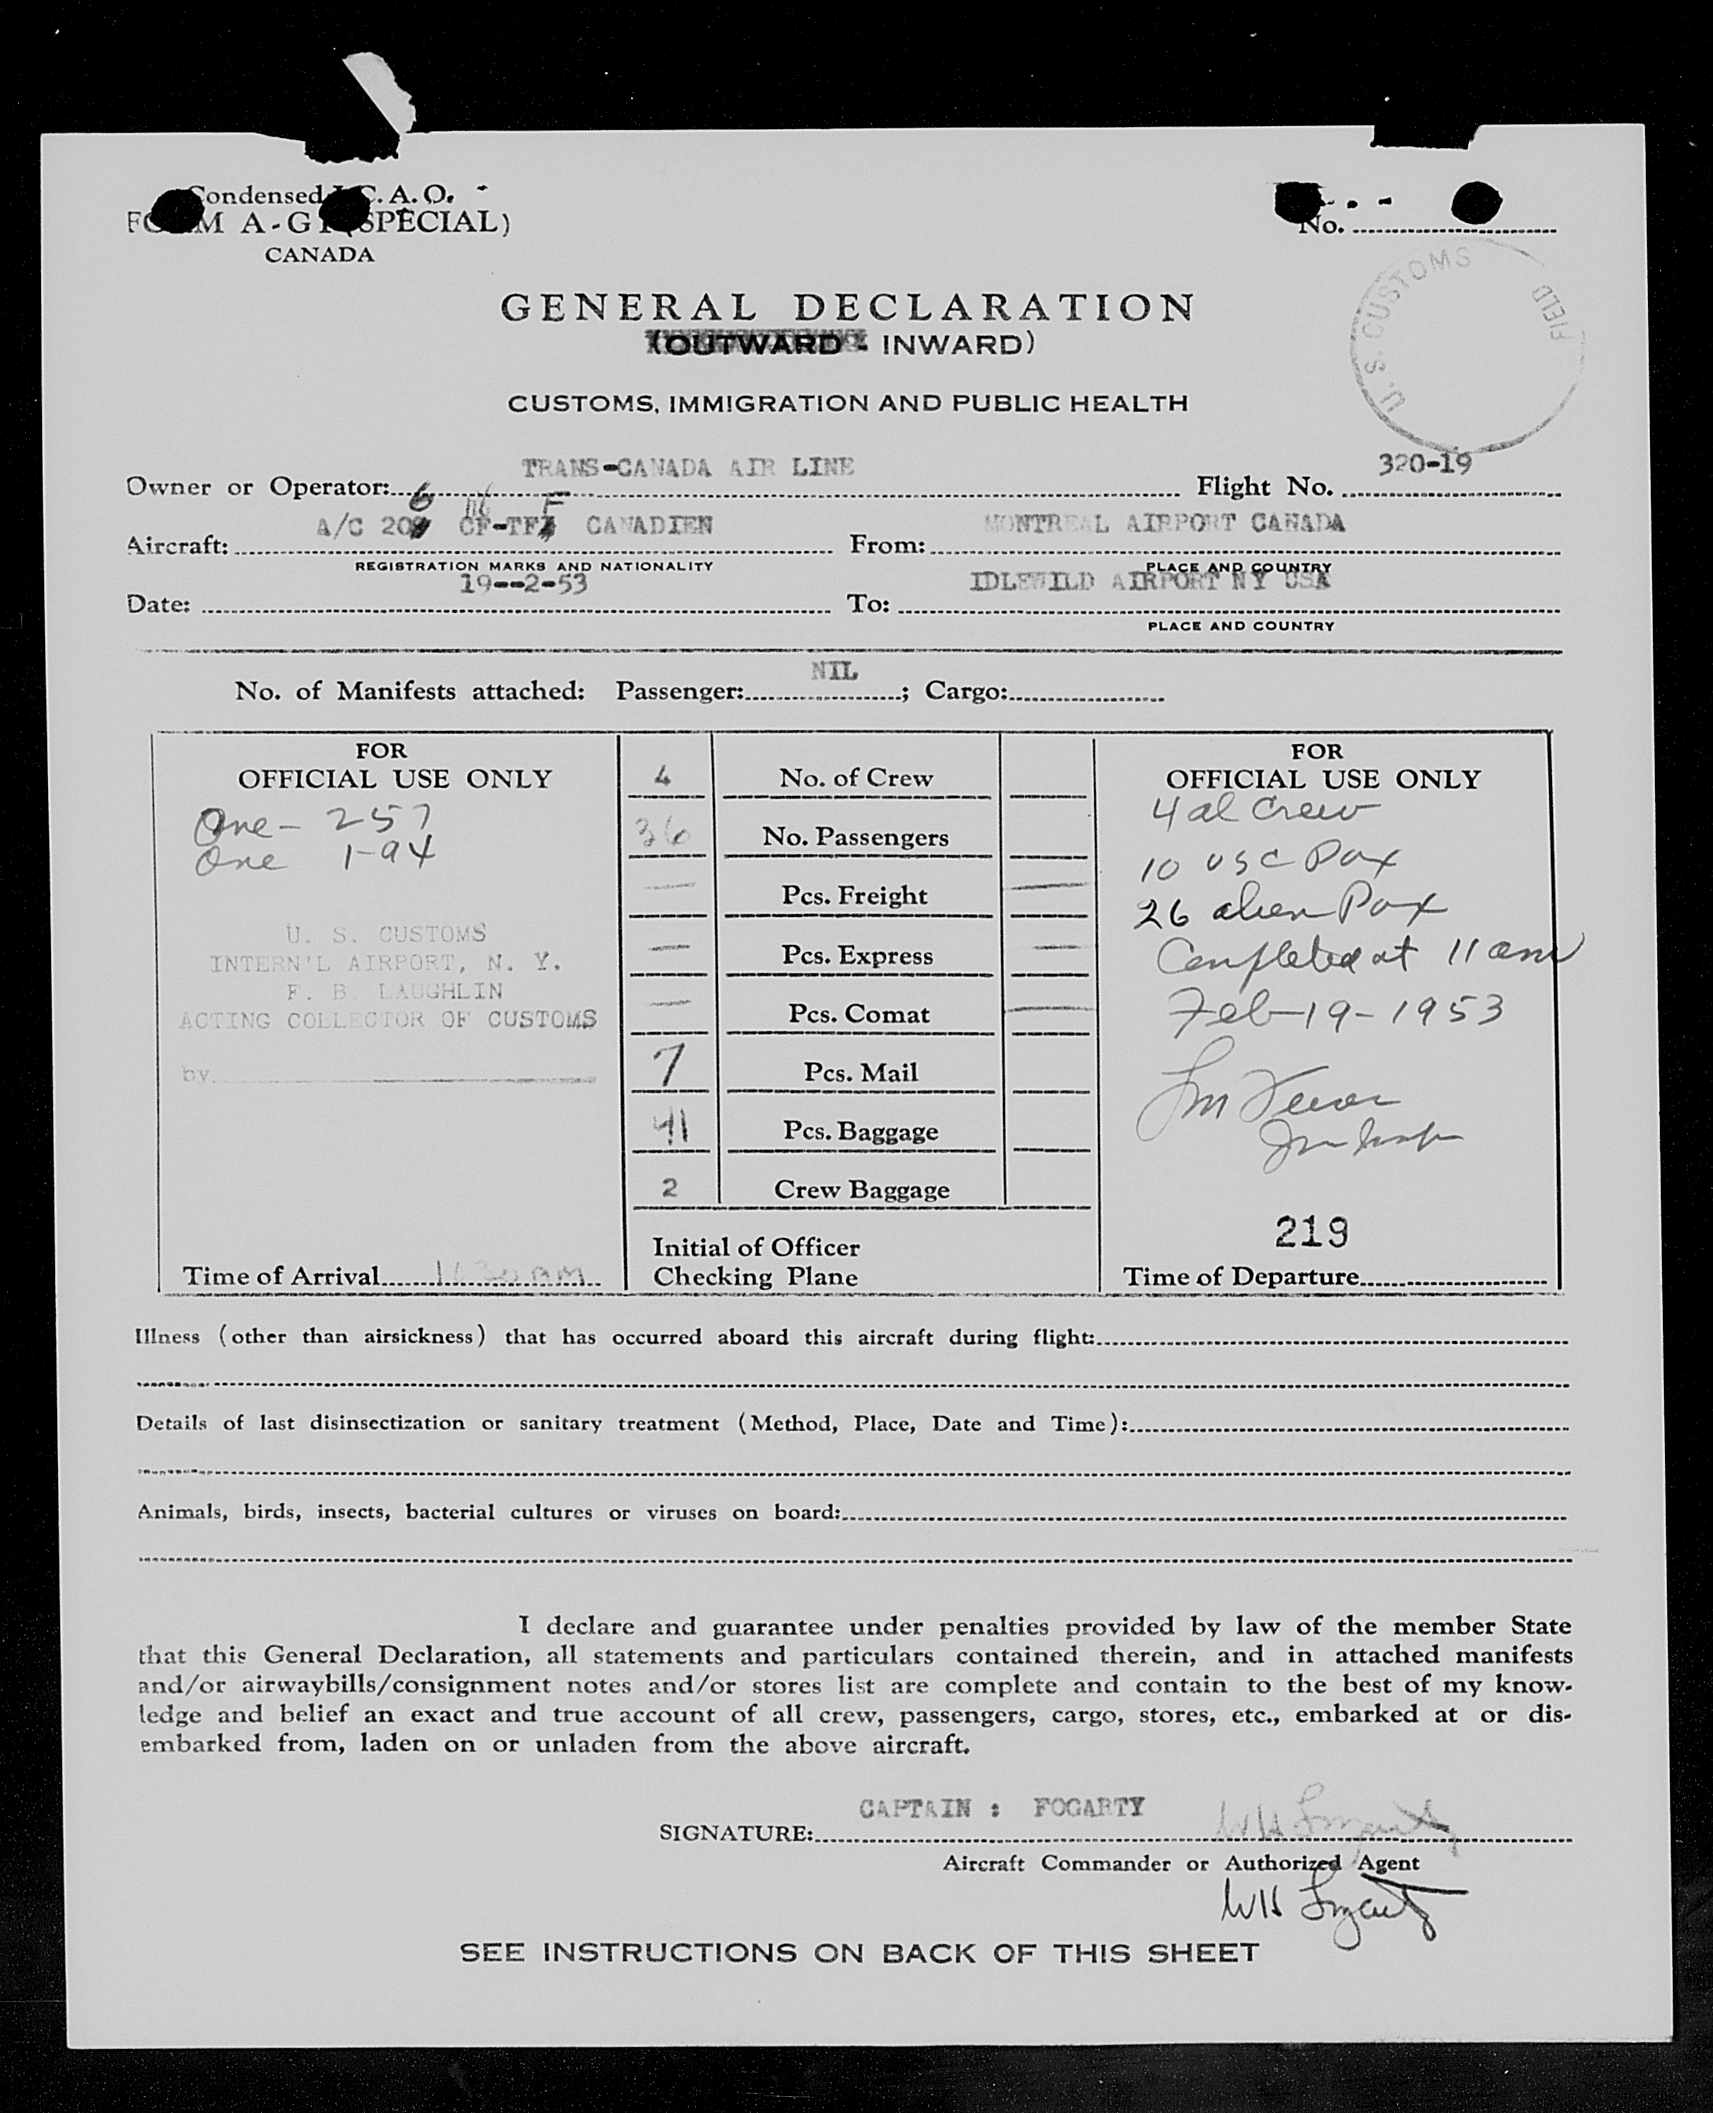 Condensed I.C.A.O.
FORM A-G1 (SPECIAL)
CANADA
No.
U. S. CUSTOMS FIELD
GENERAL DECLARATION
(OUTWARD - INWARD)
CUSTOMS, IMMIGRATION AND PUBLIC HEALTH
Owner or Operator: TRANS-CANADA AIR LINE Flight No. 320-19
Aircraft: A/C 206 CF-TFF CANADIEN From: MONTREAL AIRPORT CANADA
REGISTRATION MARKS AND NATIONALITY PLACE AND COUNTRY
Date: 19--2-53 To: IDLEWILD AIRPORT NY USA
PLACE AND COUNTRY
No. of Manifests attached: Passenger: NIL ; Cargo:
FOR
OFFICIAL USE ONLY
One - 257
One 1-94
U. S. CUSTOMS
INTERN'L AIRPORT, N. Y.
F. B. LAUGHLIN
ACTING COLLECTOR OF CUSTOMS
by
Time of Arrival
4 No. of Crew
36 No. Passengers
— Pcs. Freight —
— Pcs. Express —
— Pcs. Comat —
7 Pcs. Mail
41 Pcs. Baggage
2 Crew Baggage
Initial of Officer
Checking Plane
FOR
OFFICIAL USE ONLY
4 al Crew
10 USC Pax
26 alien Pax
Completed at 11 am
Feb-19-1953
219
Time of Departure
Illness (other than airsickness) that has occurred aboard this aircraft during flight:
Details of last disinsectization or sanitary treatment (Method, Place, Date and Time):
Animals, birds, insects, bacterial cultures or viruses on board:
I declare and guarantee under penalties provided by law of the member State
that this General Declaration, all statements and particulars contained therein, and in attached manifests
and/or airwaybills/consignment notes and/or stores list are complete and contain to the best of my know-
ledge and belief an exact and true account of all crew, passengers, cargo, stores, etc., embarked at or dis-
embarked from, laden on or unladen from the above aircraft.
CAPTAIN : FOGARTY WH Fogarty
SIGNATURE:
Aircraft Commander or Authorized Agent
WH Fogarty
SEE INSTRUCTIONS ON BACK OF THIS SHEET